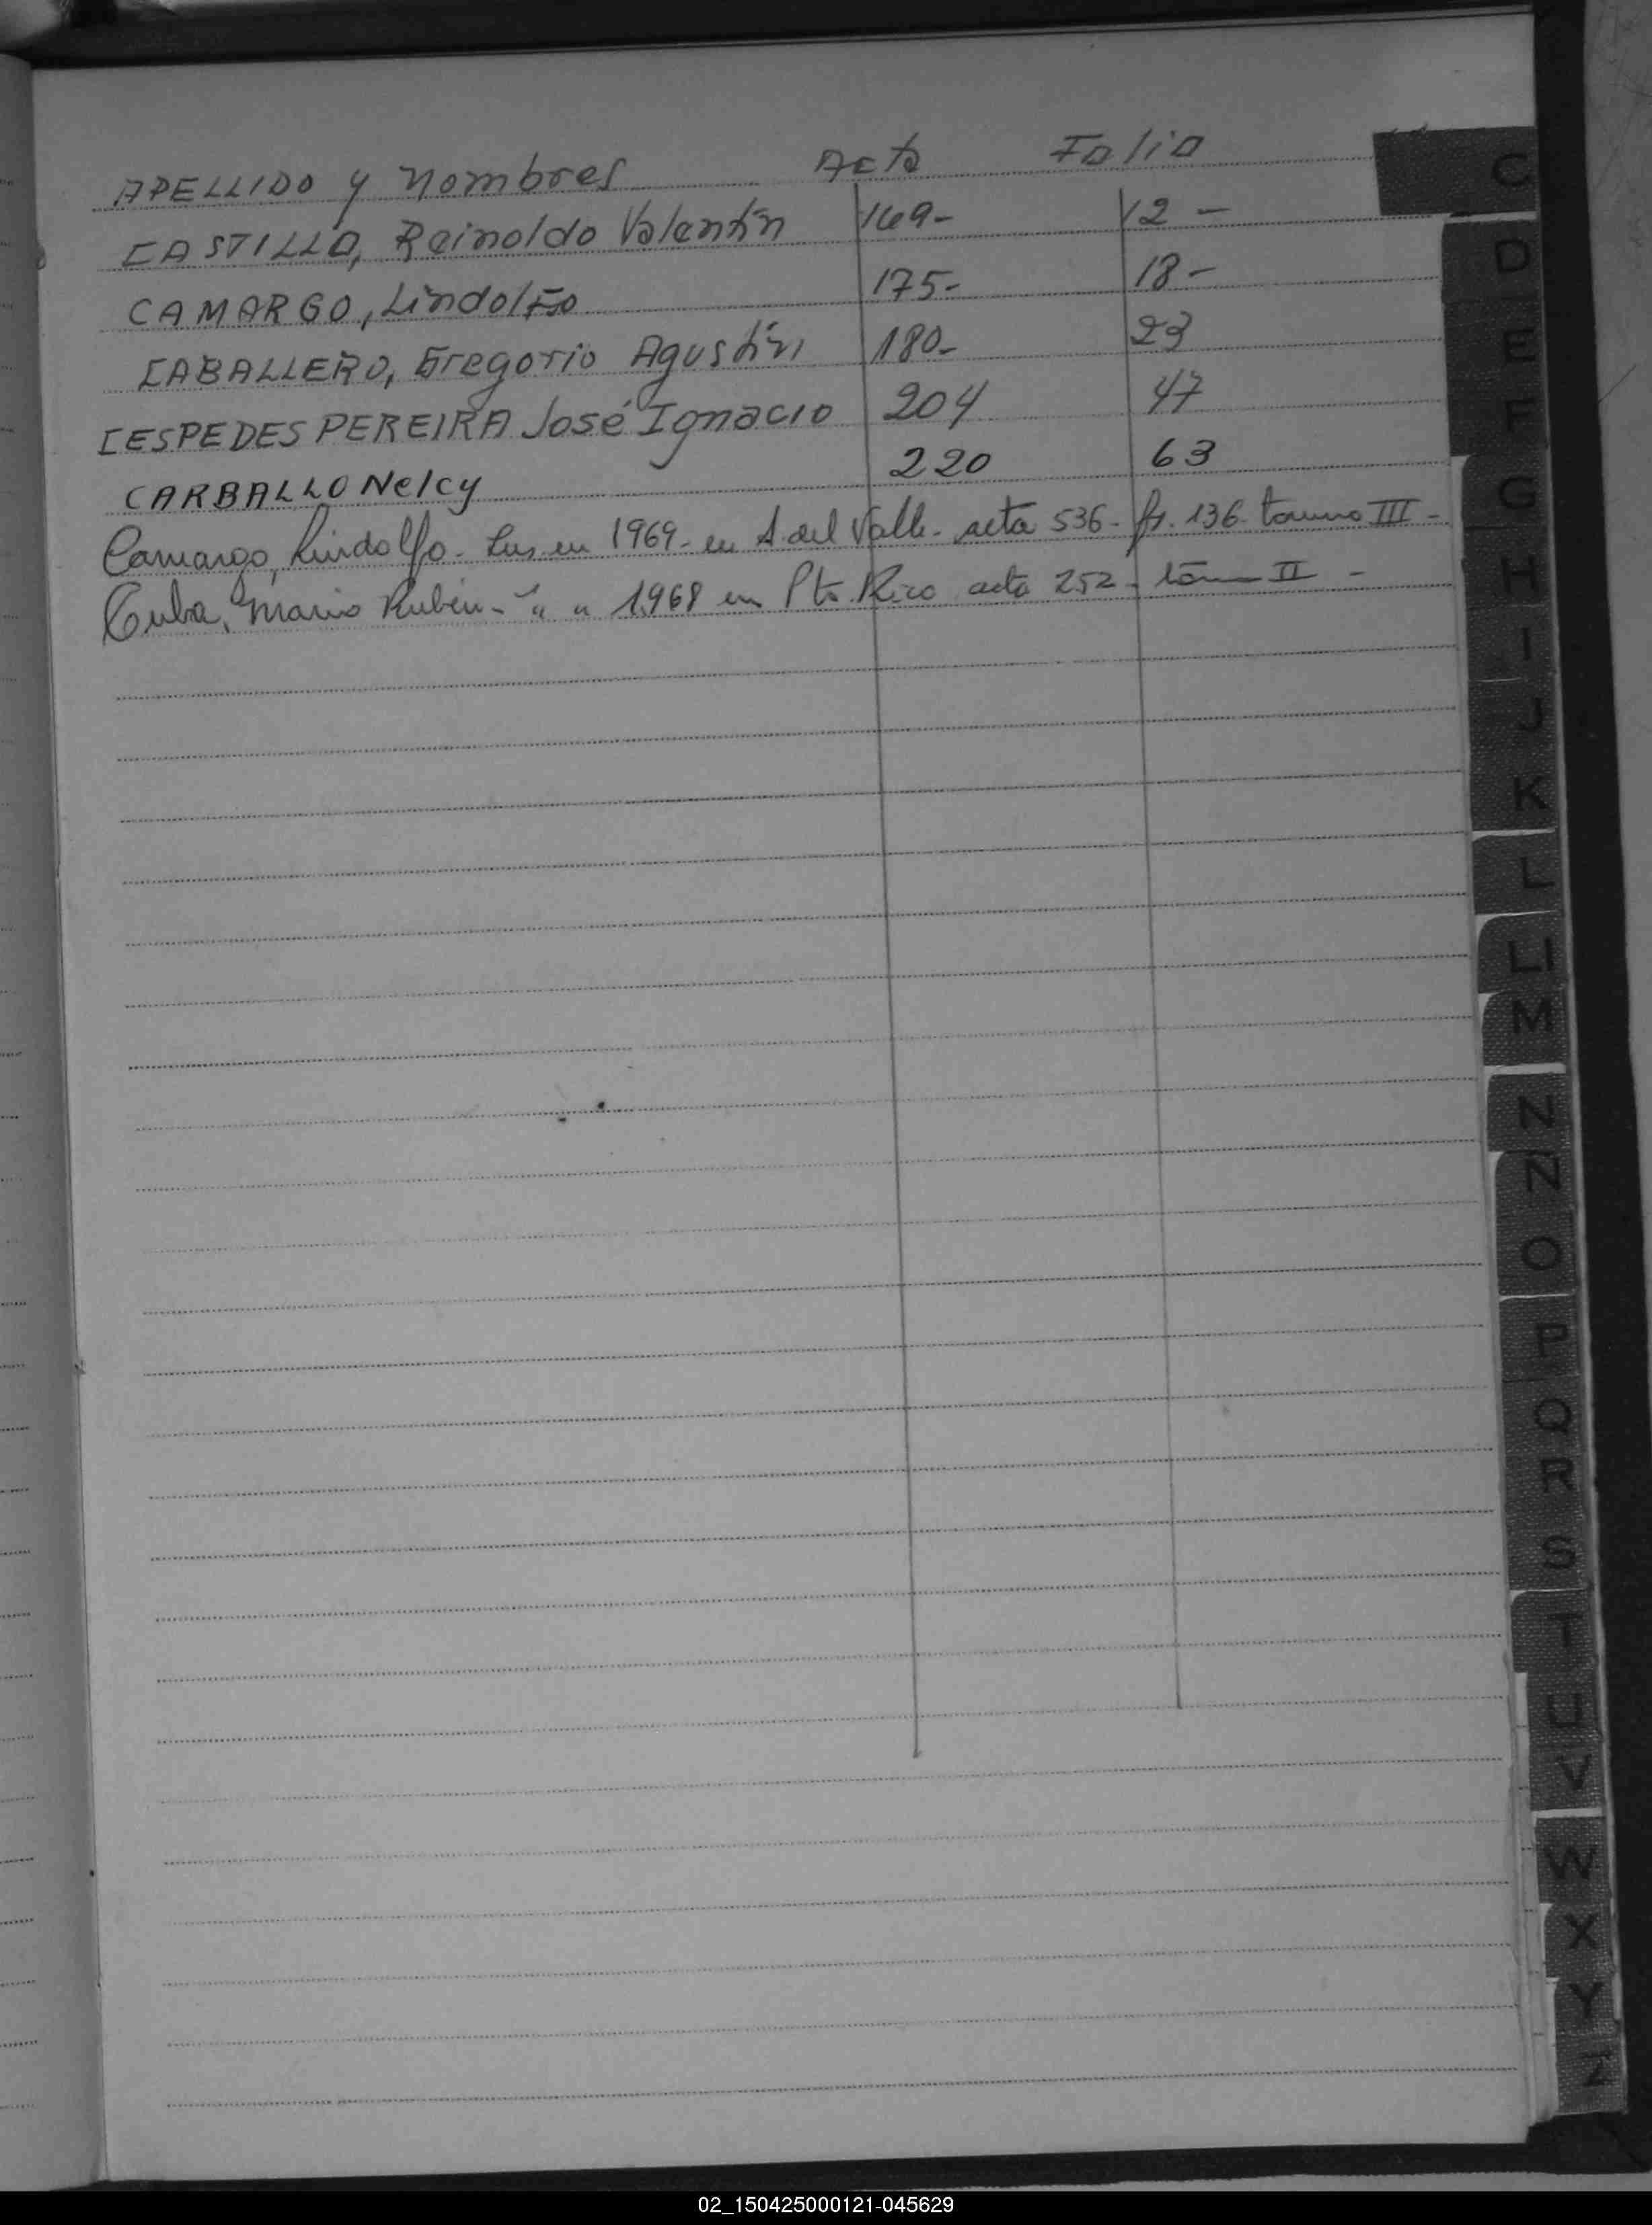 APELLIDO y Nombres Acta Folio
CASTILLO, Reinoldo Valentín 169- 12-
CAMARGO, Lindolfo 175- 18-
CABALLERO, Gregorio Agustín 180- 23
CESPEDES PEREIRA José Ignacio 204 47
CARBALLO Nelcy 220 63
Camargo, Lindolfo - Ins en 1969 - en A. del Valle - acta 536 - fº. 136 - tomo III -
Cuba, Mario Rubén - " " 1968 en Pto Rico acta 252 - tomo II -
C
D
E
F
G
H
I
J
K
L
LL
M
N
Ñ
O
P
Q
R
S
T
U
V
W
X
Y
Z
02_150425000121-045629